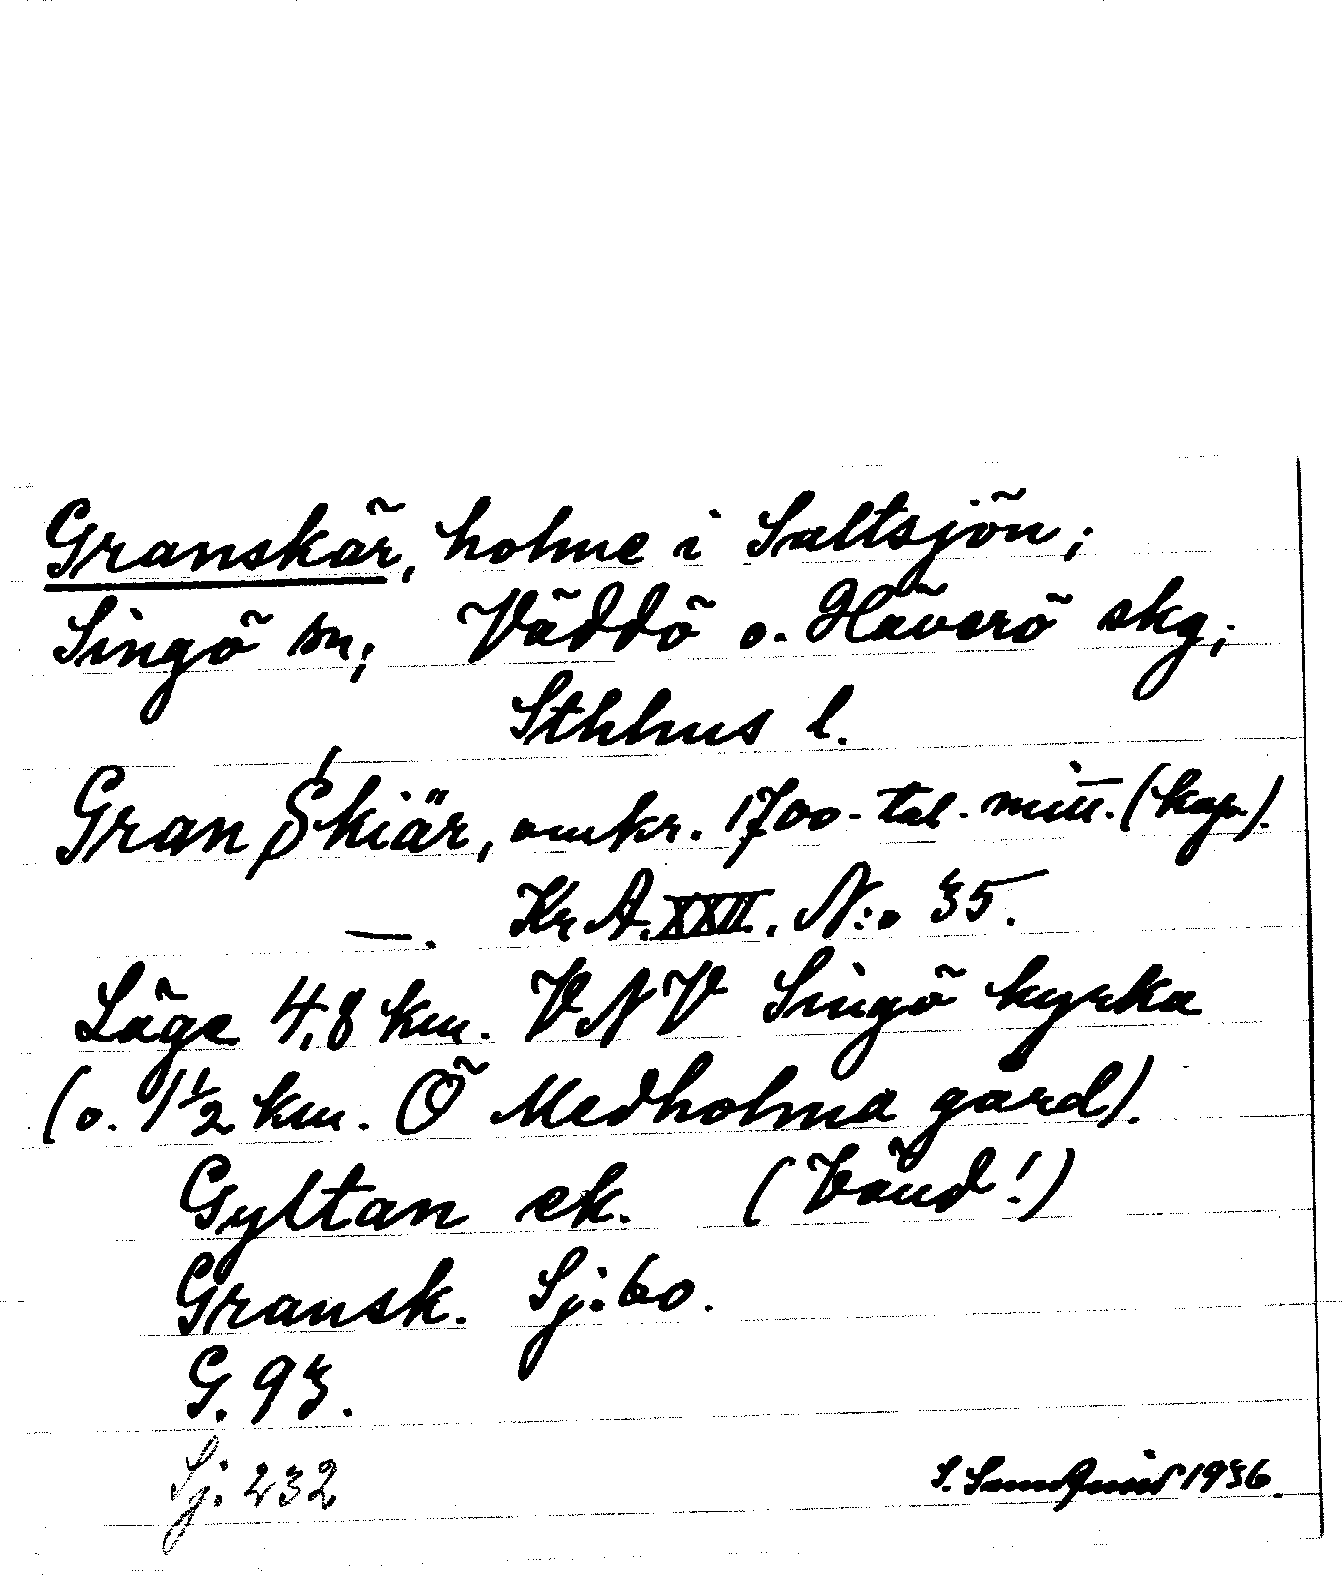 Granskär, holme i Saltsjön;
Singö sn; Väddö o. Häverö skg;
Sthlms l.
Gran Skiär, omkr. 1700-tal. mitt. (kop.).
—. Kr A. XXII. N:o 35.
Läge 4,8 km. VNV Singö kyrka
(o. 1 1/2 km. Ö Medholma gård).
Gyltan ek. (Vänd!)
Gransk. Sj:60.
G. 93.
Sj: 232
S. Sundquist 1936.